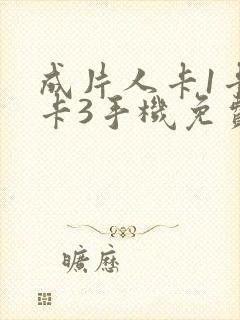 成片人卡1卡
卡3手機免費
曠歷